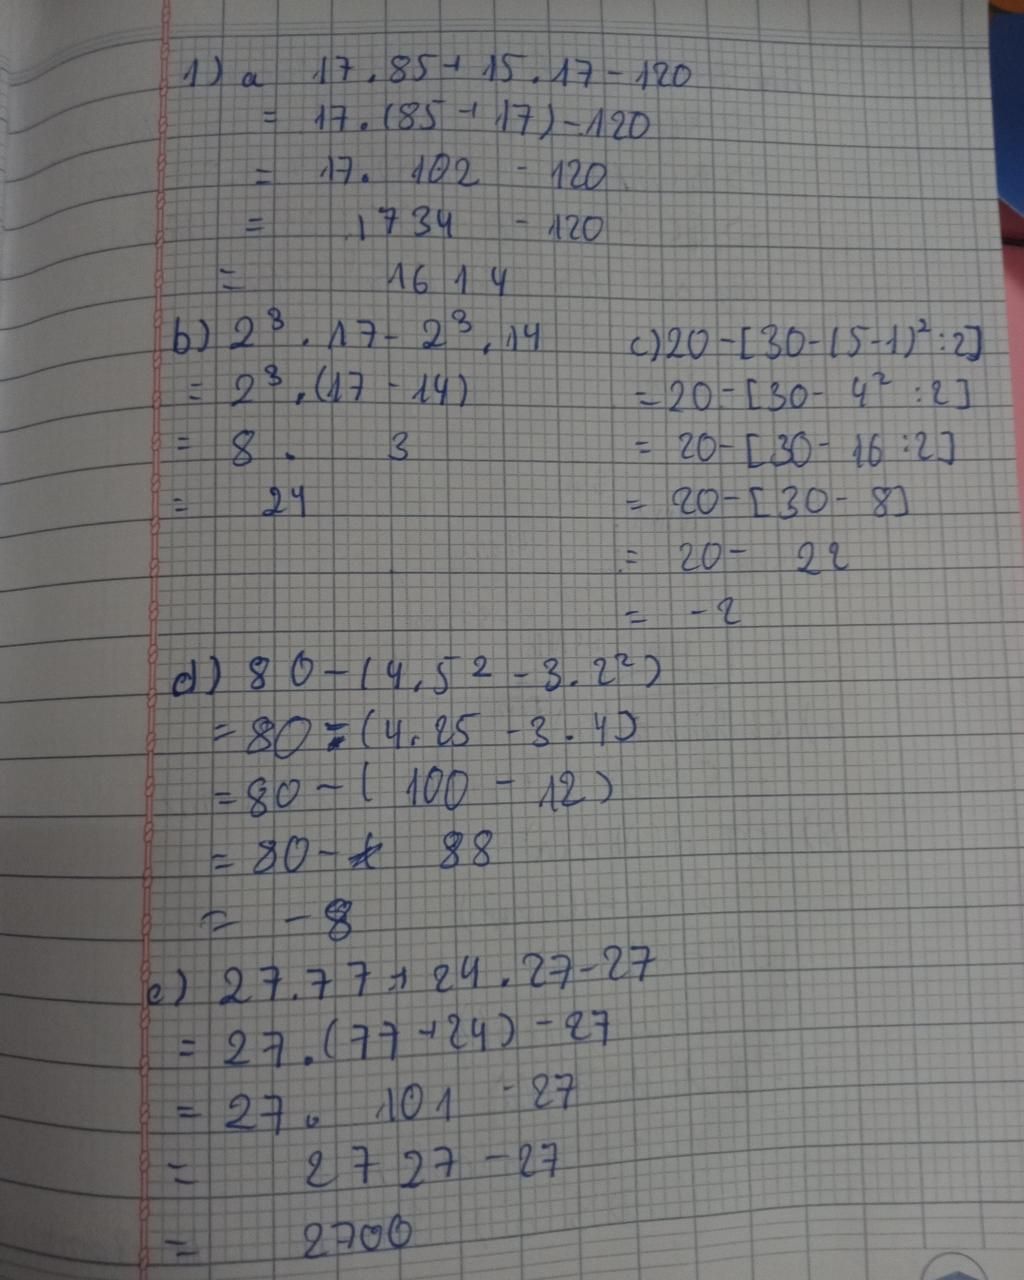 1) a 17.85+15.17-120
= 17.(85+17)-120
= 17. 102 - 120
= 1734 - 120
= 1614
b) 2³.17-2³.14
= 2³.(17-14)
= 8 . 3
= 24
c) 20-[30-(5-1)²:2]
= 20-[30- 4² :2]
= 20-[30- 16 :2]
= 20-[30- 8]
= 20- 22
= -2
d) 80-(4.5²-3.2²)
= 80-(4.25-3.4)
= 80-( 100 - 12)
= 80- 88
= -8
e) 27.77+24.27-27
= 27.(77+24)-27
= 27. 101 -27
= 2727-27
= 2700